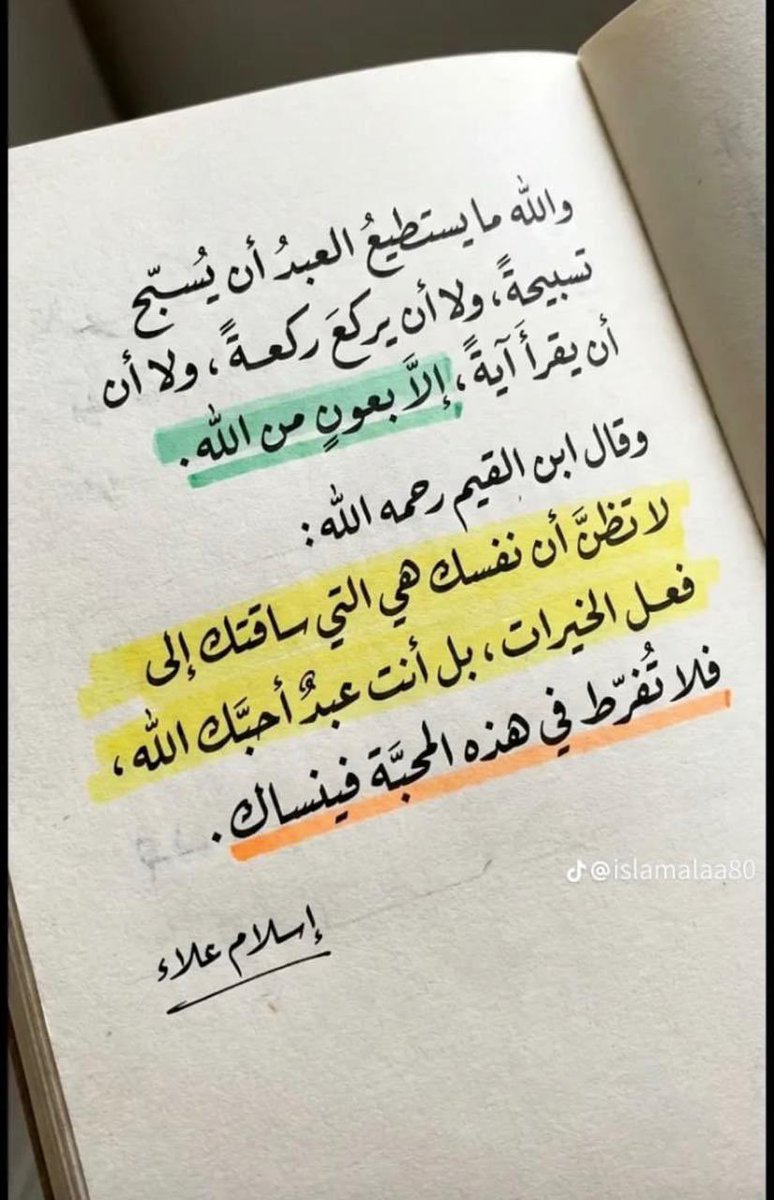 والله ما يستطيعُ العبدُ أن يُسبّح
تسبيحةً، ولا أن يركعَ ركعةً، ولا أن
أن يقرأ آيةً، إلاَّ بعونٍ من الله.
وقال ابن القيم رحمه الله:
لا تظنَّ أن نفسك هي التي ساقتك إلى
فعل الخيرات، بل أنت عبدٌ أحبَّك الله،
فلا تُفرّط في هذه المحبَّة فينساك.
@islamalaa80
إسلام علاء